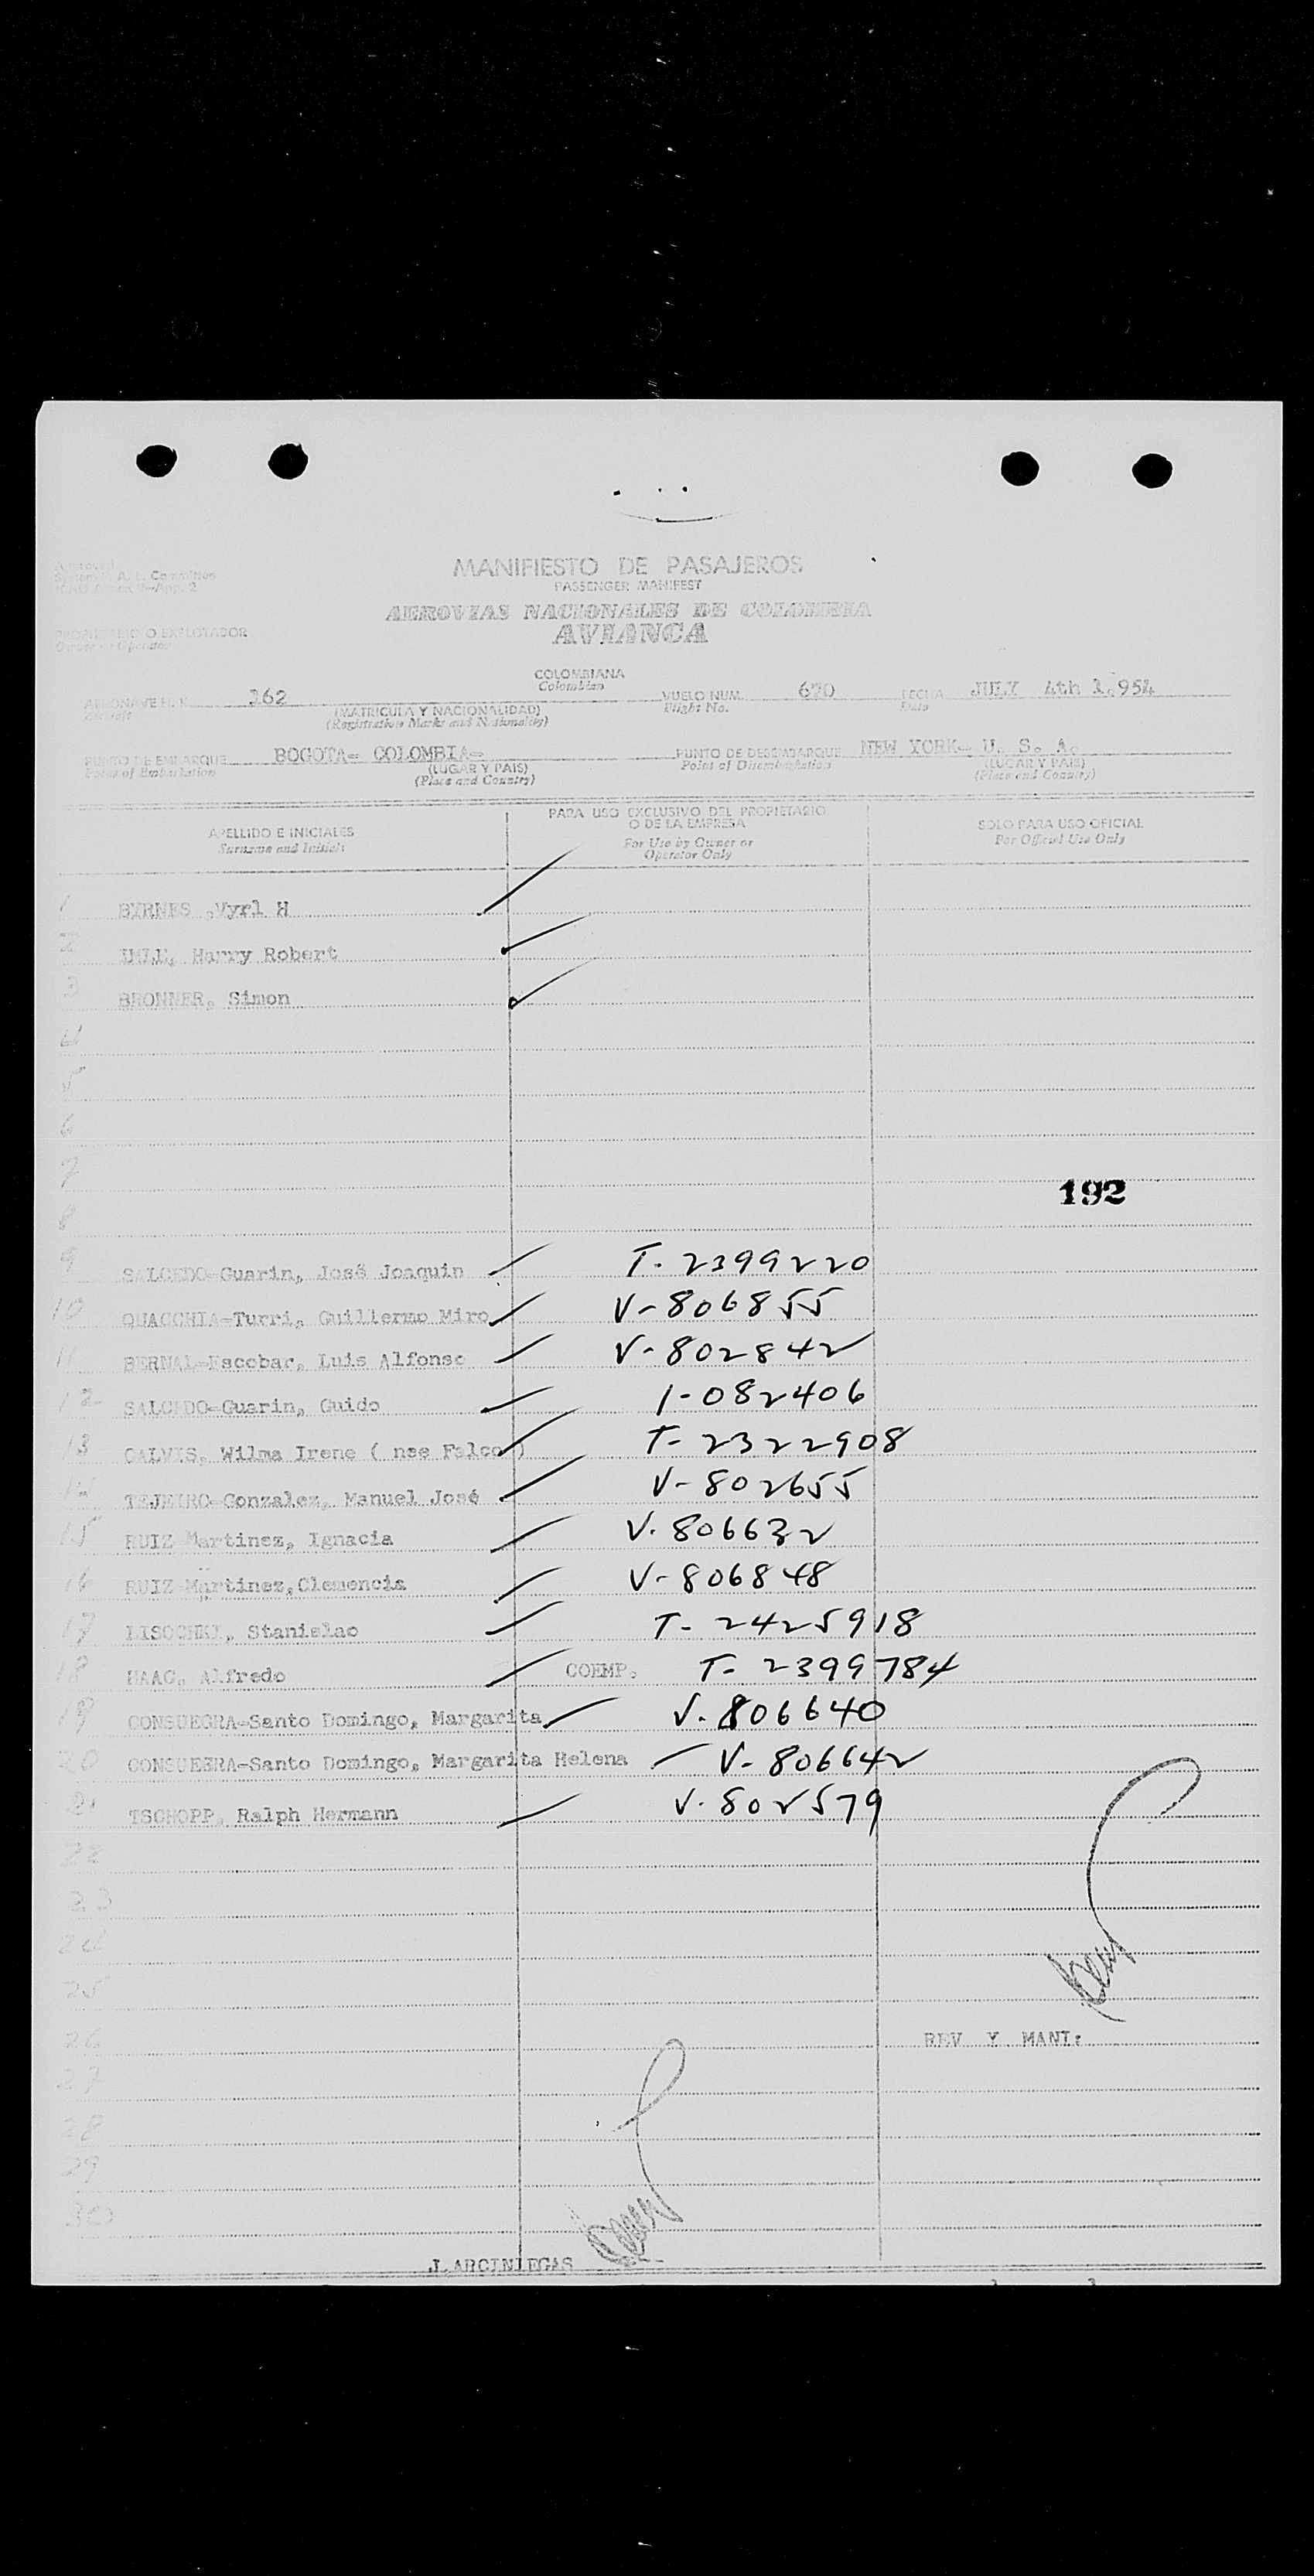 Approved
A. L. Committee
2
MANIFIESTO DE PASAJEROS
PASSENGER MANIFEST
AEROVIAS NACIONALES DE COLOMBIA
AVIANCA
PROPIETARIO O EXPLOTADOR
Owner or Operator
COLOMBIANA
Colombian
AERONAVE H. K. 162 VUELO NUM. 670 FECHA JULY 4th 1.954
Aircraft (MATRICULA Y NACIONALIDAD) Flight No. Date
(Registration Marks and Nationality)
PUNTO DE EMBARQUE BOGOTA- COLOMBIA- PUNTO DE DESEMBARQUE NEW YORK- U. S. A.
Point of Embarkation (LUGAR Y PAIS) Point of Disembarkation (LUGAR Y PAIS)
(Place and Country) (Place and Country)
APELLIDO E INICIALES PARA USO EXCLUSIVO DEL PROPIETARIO SOLO PARA USO OFICIAL
Surname and Initials O DE LA EMPRESA For Official Use Only
For Use by Owner or
Operator Only
1 BYRNES ,Vyrl H
2 Harry Robert
3 BRONNER, Simon
4
5
6
7
192
8
9 SALCEDO-Guarin, José Joaquin T-2399220
10 QUACCHIA-Turri, Guillermo Miro V-806855
11 BERNAL-Escobar, Luis Alfonso V-802842
12 SALCEDO-Guarin, Guido 1-082406
13 CALVIS, Wilma Irene ( nee Falco ) T-2322908
14 TEJEIRO-Gonzalez, Manuel José V-802655
15 RUIZ Martinez, Ignacia V-806632
16 RUIZ-Martinez,Clemencia V-806848
17 LISOCHKI, Stanislao T-2425918
18 HAAG, Alfredo COEMP. T-2399784
19 CONSUEGRA-Santo Domingo, Margarita V-806640
20 CONSUEERA-Santo Domingo, Margarita Helena V-806642
21 TSCHOPP, Ralph Hermann V-802579
22
23
24
25
26 REV Y MANI:
27
28
29
30
J.ARCINIEGAS